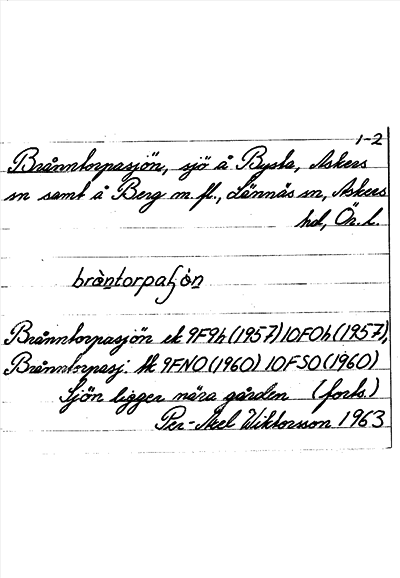 1-2
Brånntorpasjön, sjö å Bysta, Askers
sn samt å Berg m. fl., Lännäs sn, Askers
hd, Ör. l.
bràntorpaʃön
Brånntorpasjön ek 9F9h (1957) 10F0h (1957),
Brånntorpasj. tk 9FNO (1960) 10FSO (1960)
Sjön ligger nära gården (forts.)
Per-Axel Wiktorsson 1963